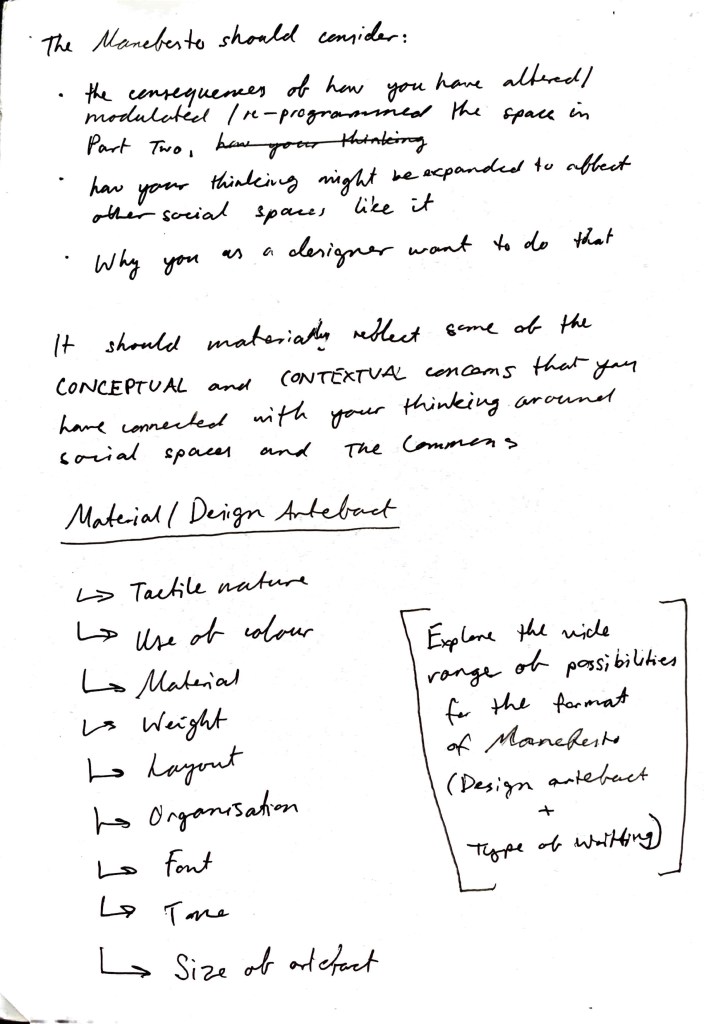 The Manefesto should consider:
· the consequences of how you have altered/
modulated / re-programmed the space in
Part Two, how your thinking
· how your thinking might be expanded to affect
other social spaces like it
· Why you as a designer want to do that
It should materially reflect some of the
CONCEPTUAL and CONTEXTUAL concerns that you
have connected with your thinking around
social spaces and The Commons
Material / Design Artefact
↳ Tactile nature
↳ Use of colour
↳ Material
↳ Weight
↳ Layout
↳ Organisation
↳ Font
↳ Tone
↳ Size of artefact
[Explore the wide
range of possibilities
for the format
of Manefesto
(Design artefact
+
Type of writting)]